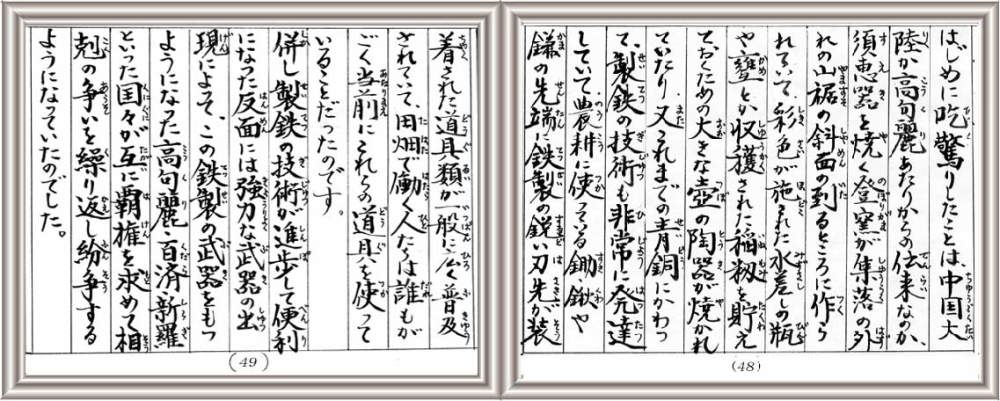 はじめに吃驚りしたことは、中国大
陸か高句麗あたりからの伝来なのか、
須恵器を焼く登窯が集落の外
れの山裾の斜面の到るところに作ら
れていて、彩色が施された水差しの瓶
や甕とか収獲された稲籾を貯え
ておくための大きな壺の陶器が焼かれ
ていたり、又これまでの青銅にかわっ
て、製鉄の技術も非常に発達
していて農耕に使っている鋤鍬や
鎌の先端に鉄製の鋭い刃先が装
(48)
着された道具類が一般に広く普及
されていて、田畑で働く人たちは誰もが
ごく当前にこれらの道具を使って
いることだったのです。
併し製鉄の技術が進歩して便利
になった反面には強力な武器の出
現によって、この鉄製の武器をもつ
ようになった高句麗・百済・新羅
といった国々が互に覇権を求めて相
剋の争いを繰り返し紛争する
ようになっていたのでした。
(49)